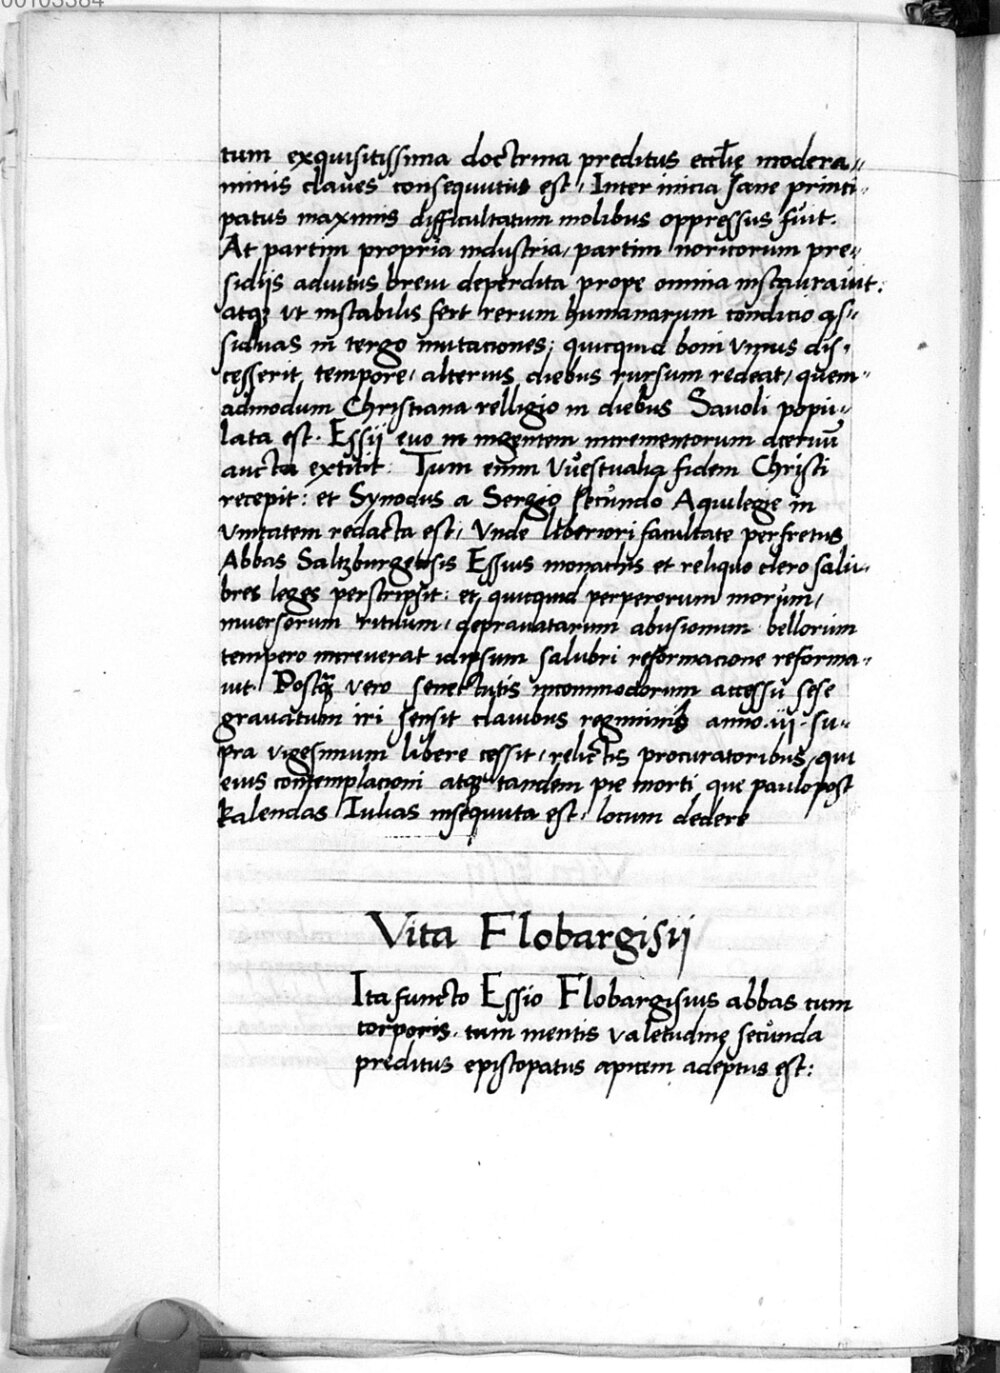 00103384
tum exquisitissima doctrina preditus eccl̄ię modera„
minis claves consequutus est, Inter inicia sane princi„
patus maximis difficultatum molibus oppressus fuit.
At partim propria industria, partim noricorum pre„
sidijs adiutus brevi deperdita prope omnia instauravit:
atq; ut instabilis fert rerum humanarum condicio as„
siduas in tergo mutaciones; quicquid boni unius dis„
cesserit tempore, alterius diebus rursum redeat, quem„
admodum Christiana relligio in diebus Savoli popu„
lata est. Essij evo in ingentem incrementorum acervū
aucta extitit. Tum enim Vuestvalia fidem Christi
recepit: et Synodus a Sergio secundo Aquilegie in
unitatem redacta est, Unde liberiori facultate perfretus
Abbas Saltzburgensis Essius monachis et reliquo clero salu„
bres leges perscripsit: et quicquid perperorum morum,
inversorum rituum, depravatarum abusionum bellorum
tempero increverat idipsum salubri reformacione reforma„
vit. Postq̄ vero senectutis incommodorum accessū sese
gravatum iri sensit clavibus regiminis anno .ij. su„
pra vigesimum libere cessit, relictis procuratoribus, qui
eius contemplacioni atq; tandem pie morti que paulopost
kalendas Iulias insequuta est, locum dedere
Vita Flobargisij
Ita functo Essio Flobargisius abbas tum
corporis. tum mentis valetudine secunda
preditus episcopatus apicem adeptus est: